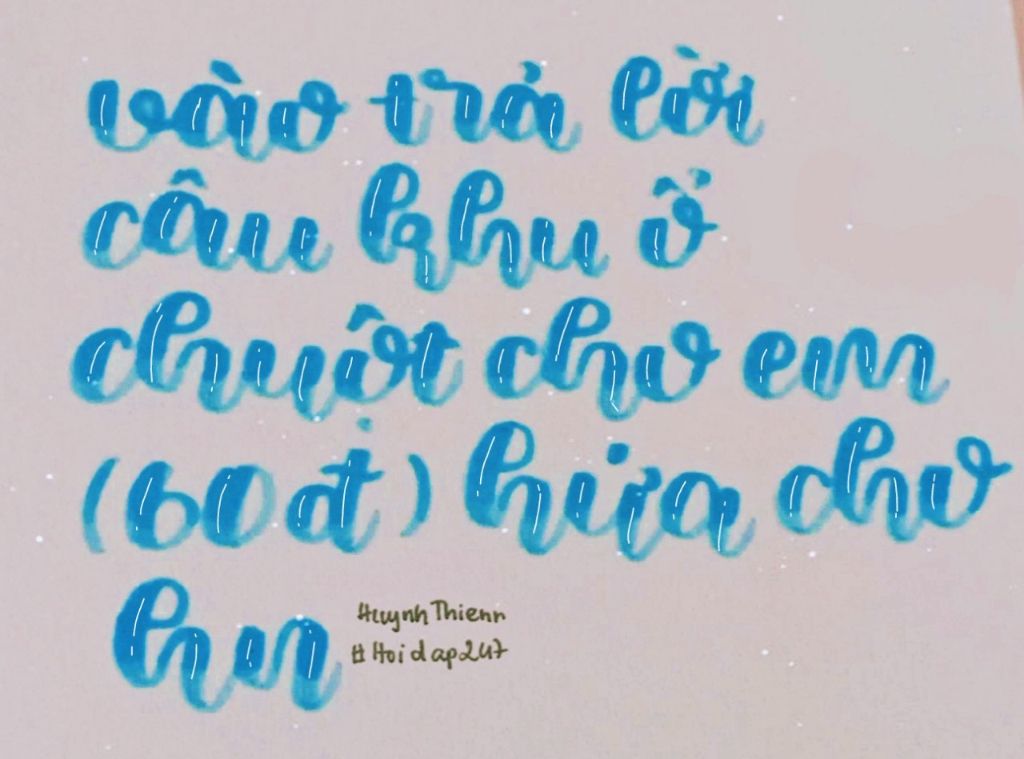 vào trả lời
câu khu ổ
chuột cho em
(60đ) hứa cho
hn
HuynhThienn
#Hoidap247